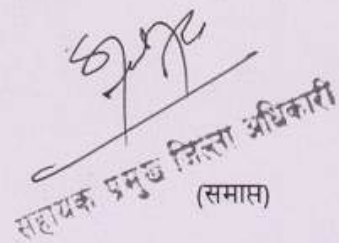 सहायक प्रमुख जिल्ला अधिकारी
(समाप्त)